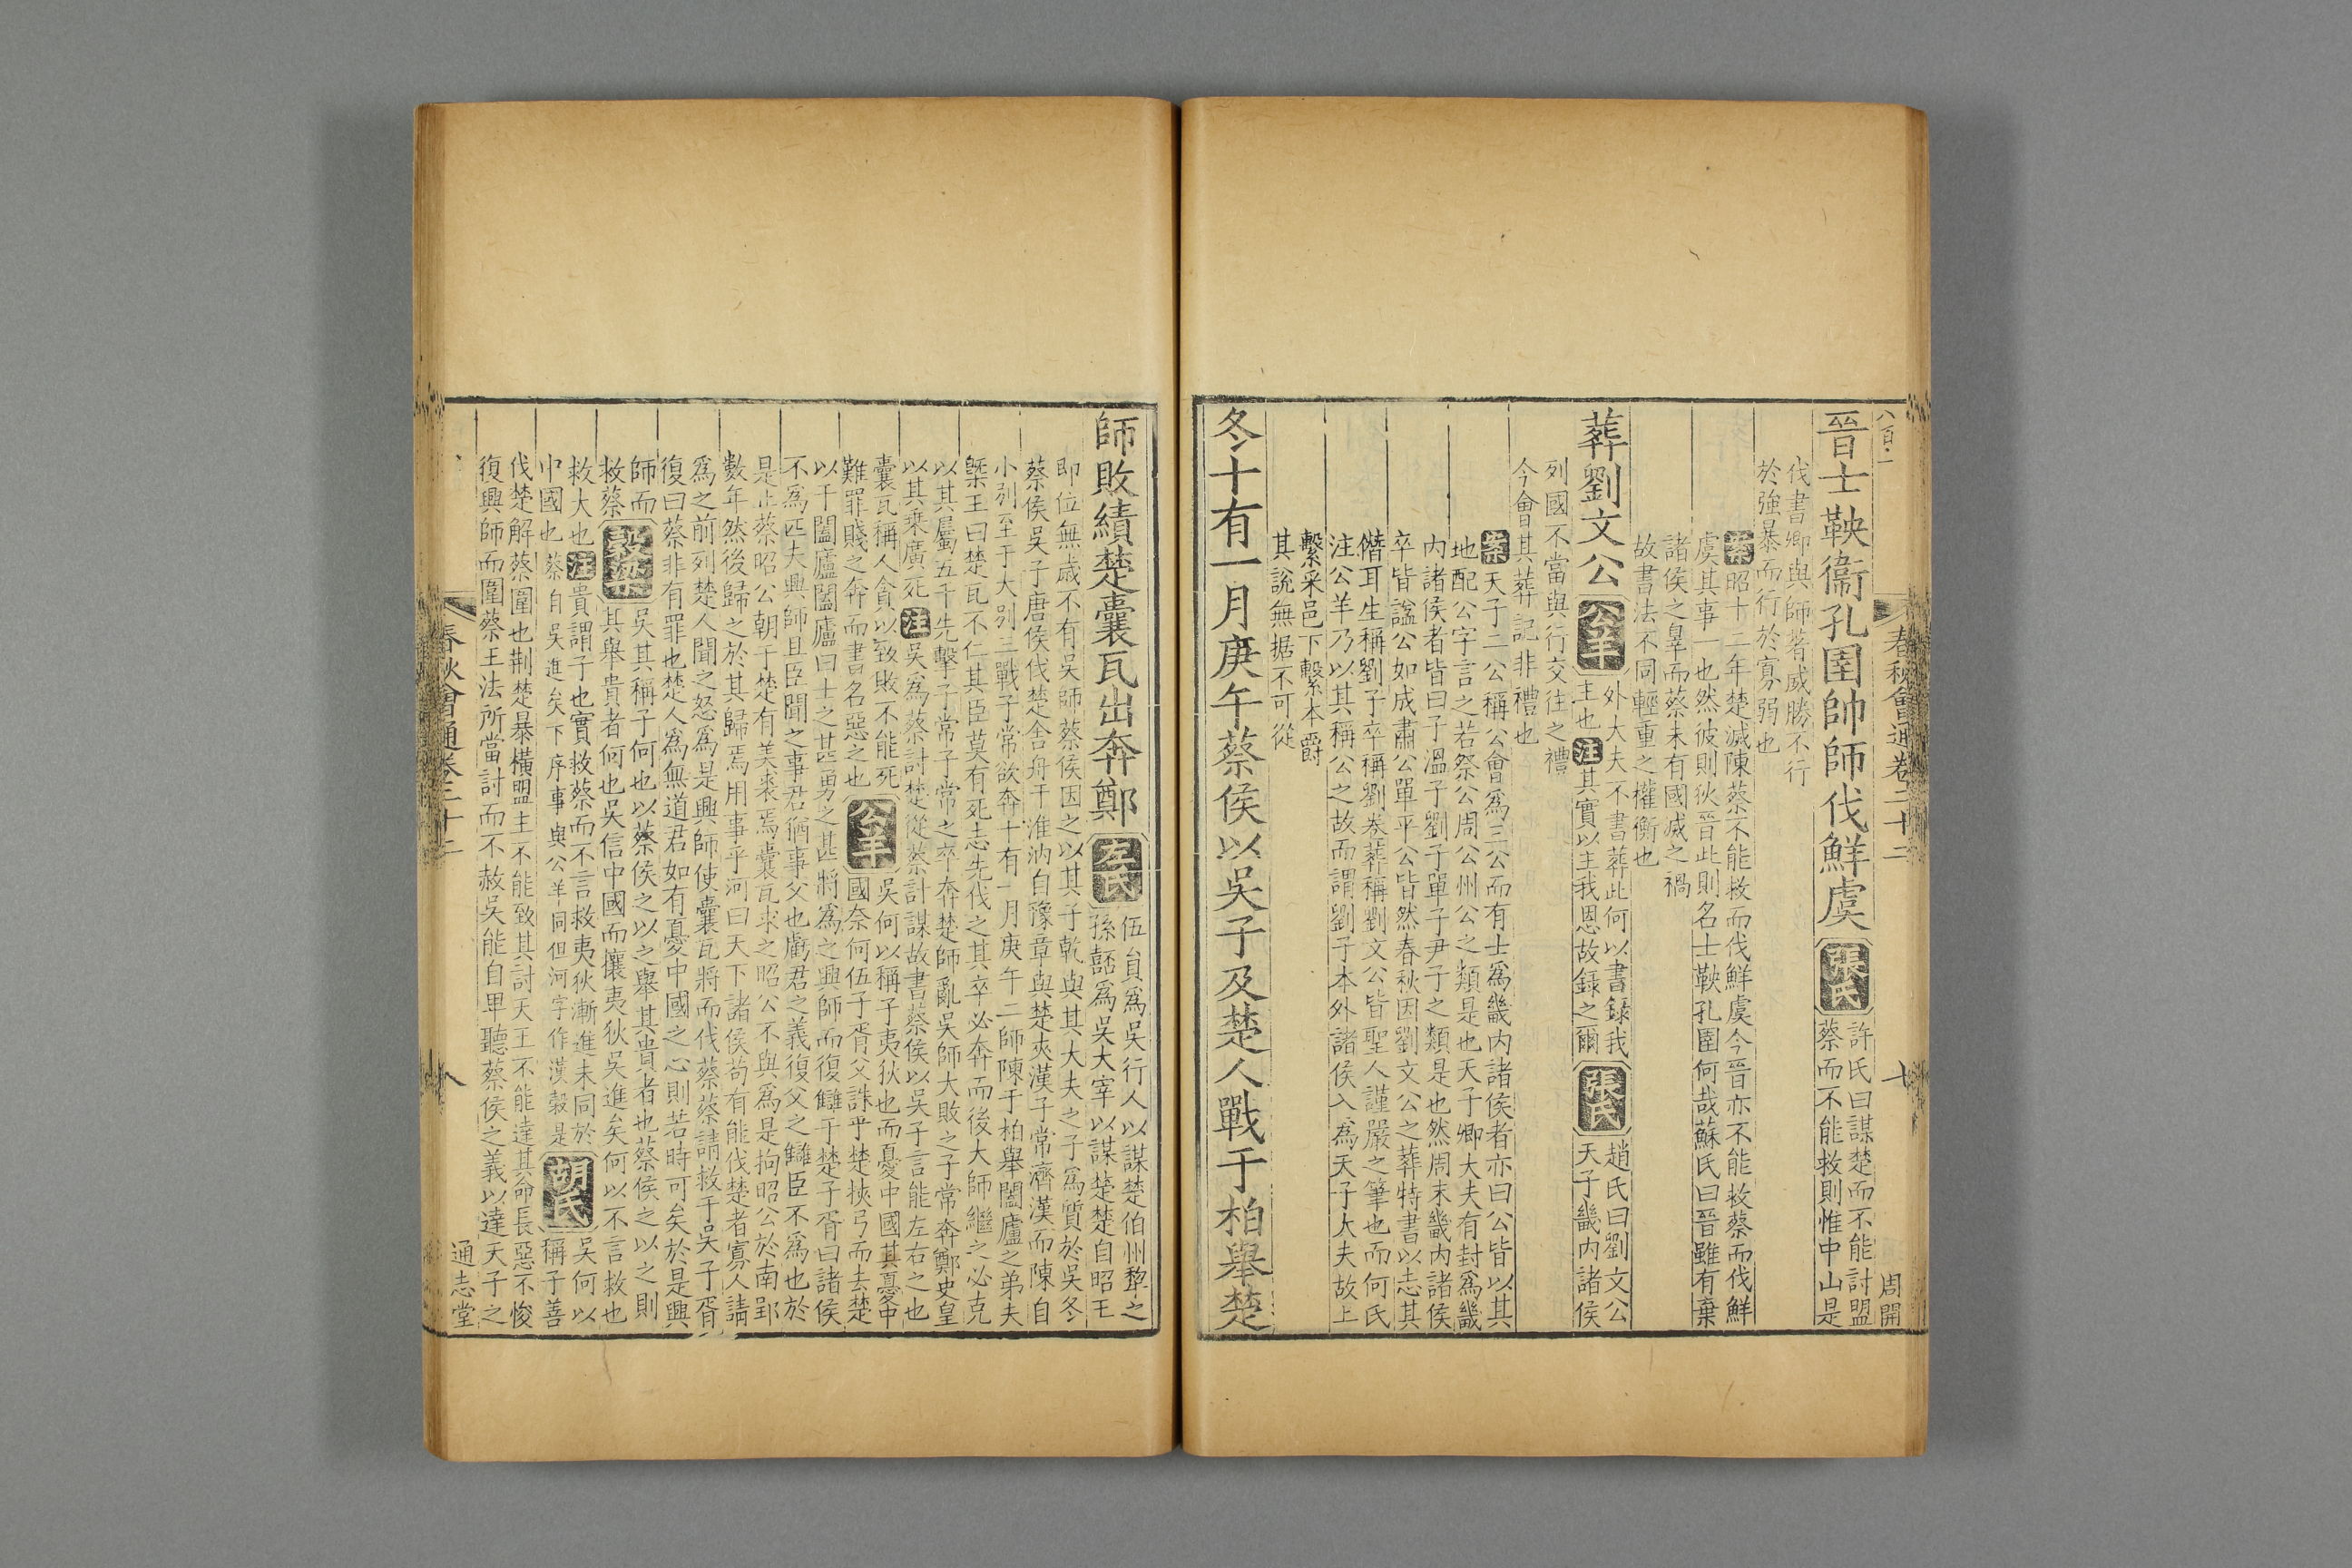 八百一
春秋會通卷二十二
七
周開
晉士鞅衞孔圉帥師伐鮮虞
張氏
許氏曰謀楚而不能討盟
蔡而不能救則惟中山是
伐書卿與師著威勝不行
於強暴而行於寡弱也
案昭十二年楚滅陳蔡不能救而伐鮮虞今晉亦不能救蔡而伐鮮
虞其事一也然彼則狄晉此則名士鞅孔圉何哉蘇氏曰晉雖有棄
諸侯之辠而蔡未有國滅之禍
故書法不同輕重之權衡也
葬劉文公
公羊
外大夫不書葬此何以書錄我
主也注其實以主我恩故錄之爾
張氏
趙氏曰劉文公
天子畿内諸侯
列國不當與行交往之禮
今會其葬記非禮也
案天子二公稱公會爲三公而有士爲畿内諸侯者亦曰公皆以其
地配公字言之若祭公周公州公之類是也天子卿大夫有封爲畿
内諸侯者皆曰子溫子劉子單子尹子之類是也然周末畿内諸侯
卒皆諡公如成肅公單平公皆然春秋因劉文公之葬特書以志其
僭耳生稱劉子卒稱劉卷葬稱劉文公皆聖人謹嚴之筆也而何氏
注公羊乃以其稱公之故而謂劉子本外諸侯入爲天子大夫故上
繫采邑下繫本爵
其說無据不可從
冬十有一月庚午蔡侯以吳子及楚人戰于柏舉楚
師敗績楚囊瓦出奔鄭
左氏
伍員爲吳行人以謀楚伯州犂之
孫嚭爲吳大宰以謀楚楚自昭王
即位無歲不有吳師蔡侯因之以其子乾與其大夫之子爲質於吳冬
蔡侯吳子唐侯伐楚舍舟于淮汭自豫章與楚夾漢子常濟漢而陳自
小别至于大别三戰子常欲奔十有一月庚午二師陳于柏舉闔廬之弟夫
槩王曰楚瓦不仁其臣莫有死志先伐之其卒必奔而後大師繼之必克
以其屬五千先擊子常子常之卒奔楚師亂吳師大敗之子常奔鄭史皇
以其乘廣死注吳爲蔡討楚從蔡計謀故書蔡侯以吳子言能左右之也
囊瓦稱人貪以致敗不能死
難罪賤之奔而書名惡之也
公羊
吳何以稱子夷狄也而憂中國其憂中
國奈何伍子胥父誅乎楚挾弓而去楚
以干闔廬闔廬曰士之甚勇之甚將爲之興師而復讎于楚子胥曰諸侯
不爲匹夫興師且臣聞之事君猶事父也虧君之義復父之讎臣不爲也於
是止蔡昭公朝于楚有美裘焉囊瓦求之昭公不與爲是拘昭公於南郢
數年然後歸之於其歸焉用事乎河曰天下諸侯苟有能伐楚者寡人請
爲之前列楚人聞之怒爲是興師使囊瓦將而伐蔡蔡請救于吳子胥
復曰蔡非有罪也楚人爲無道君如有憂中國之心則若時可矣於是興
師而
救蔡
穀梁
吳其稱子何也以蔡侯之以之舉其貴者也蔡侯之以之則
其舉貴者何也吳信中國而攘夷狄吳進矣何以不言救也
救大也注貴謂子也實救蔡而不言救夷狄漸進未同於
中國也蔡自吳進矣下序事與公羊同但河字作漢穀是
胡氏
吳何以
稱子善
伐楚解蔡圍也荆楚暴橫盟主不能致其討天王不能達其命長惡不悛
復興師而圍蔡王法所當討而不赦吳能自卑聽蔡侯之義以達天子之
春秋會通卷二十二
八
通志堂